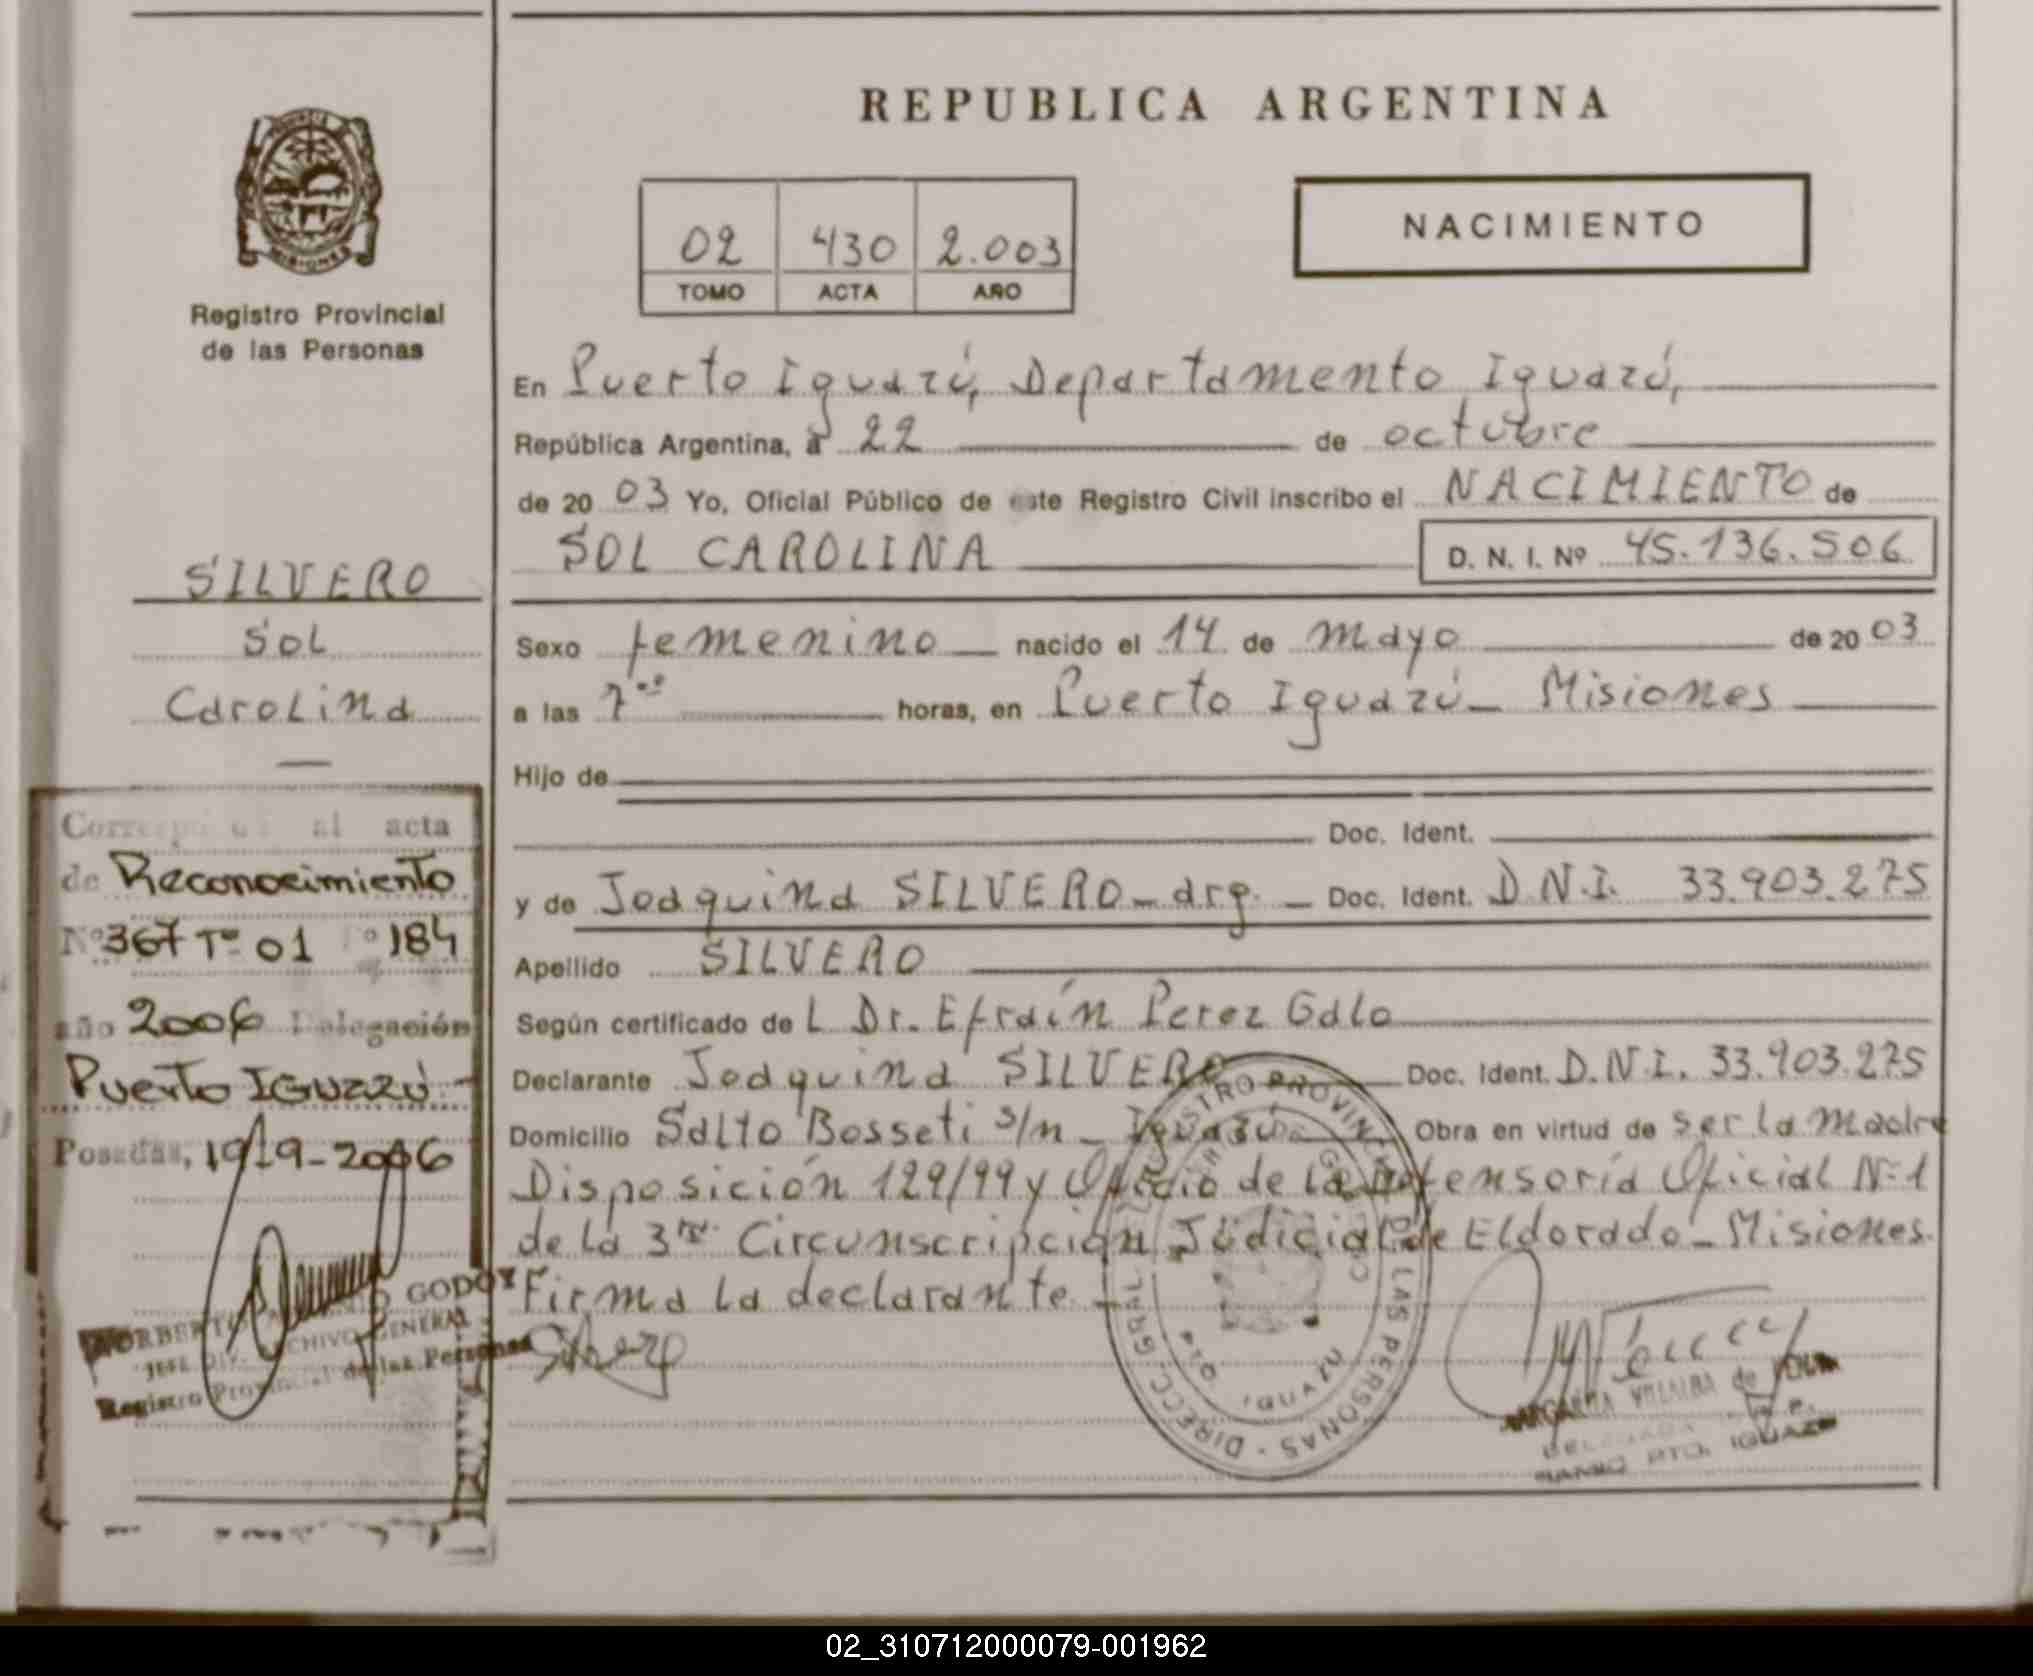 REPUBLICA ARGENTINA
MISIONES
Registro Provincial
de las Personas
02 430 2.003
TOMO ACTA AÑO
NACIMIENTO
En Puerto Iguazú, Departamento Iguazú,
República Argentina, a 22 de octubre
de 20 03 Yo, Oficial Público de este Registro Civil inscribo el NACIMIENTO de
SOL CAROLINA D. N. I. Nº 45.136.506
Sexo femenino nacido el 14 de mayo de 20 03
a las 7 horas, en Puerto Iguazú - Misiones
Hijo de
Doc. Ident.
y de Joaquina SILVERO - arg. - Doc. Ident. D.N.I. 33.903.275
Apellido SILVERO
Según certificado de L Dr. Efraín Perez Galo
Declarante Joaquina SILVERO Doc. Ident. D.N.I. 33.903.275
Domicilio Salto Bosseti s/n - Iguazú Obra en virtud de ser la madre
Disposición 129/99 y Oficio de la Defensoría Oficial Nº 1
de la 3ra. Circunscripción Judicial de Eldorado - Misiones.
Firma la declarante -
SILVERO
Sol
Carolina
Corresponde al acta
de Reconocimiento
Nº 367 Tº 01 Fº 184
año 2006 Delegación
Puerto IGuazú -
Posadas, 19-9-2006
NORBERTO GODOY
JEFE DIV. ARCHIVO GENERAL
Registro Provincial de las Personas
DIRECC. GRAL. DEL REGISTRO PROVINCIAL DE LAS PERSONAS
MARGARITA VILLALBA de
DELEGADA R. P.
PTO. IGUAZU
02_310712000079-001962